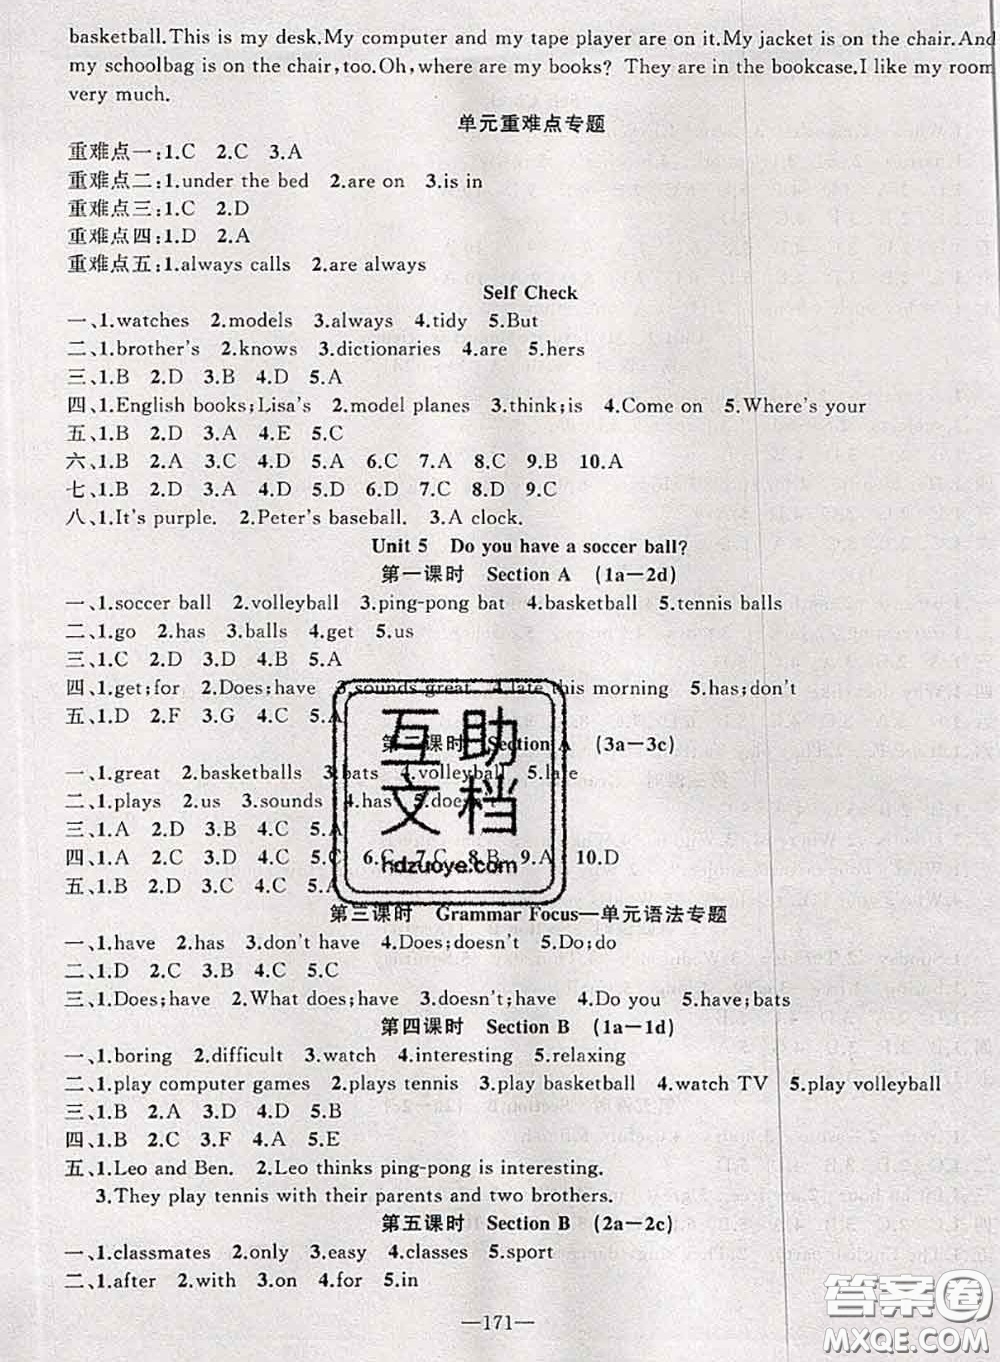 basketball.This is my desk.My computer and my tape player are on it.My jacket is on the chair.And
my schoolbag is on the chair,too.Oh,where are my books? They are in the bookcase.I like my room
very much.
单元重难点专题
重难点一:1.C 2.C 3.A
重难点二:1.under the bed 2.are on 3.is in
重难点三:1.C 2.D
重难点四:1.D 2.A
重难点五:1.always calls 2.are always
Self Check
一、1.watches 2.models 3.always 4.tidy 5.But
二、1.brother's 2.knows 3.dictionaries 4.are 5.hers
三、1.B 2.D 3.B 4.D 5.A
四、1.English books;Lisa's 2.model planes 3.think;is 4.Come on 5.Where's your
五、1.B 2.D 3.A 4.E 5.C
六、1.B 2.A 3.C 4.D 5.A 6.C 7.A 8.C 9.B 10.A
七、1.B 2.D 3.A 4.D 5.D 6.D 7.C 8.D 9.C
八、1.It's purple. 2.Peter's baseball. 3.A clock.
Unit 5 Do you have a soccer ball?
第一课时 Section A (1a—2d)
一、1.soccer ball 2.volleyball 3.ping-pong bat 4.basketball 5.tennis balls
二、1.go 2.has 3.balls 4.get 5.us
三、1.C 2.D 3.D 4.D 5.A
四、1.get;for 2.Does;have 3.sounds great 4.late this morning 5.has;don't
五、1.D 2.F 3.G 4.C 5.A
第二课时 Section A (3a—3c)
一、1.great 2.basketballs 3.bats 4.volleyball 5.late
二、1.plays 2.us 3.sounds 4.has
三、1.A 2.D 3.B 4.C 5.A
四、1.A 2.C 3.D 4.C 5.C 6.C 7.C 8.B 9.A 10.D
五、1.B 2.D 3.C 4.C 5.A
互助
文档
hdzuoye.com
第三课时 Grammar Focus—单元语法专题
一、1.have 2.has 3.don't have 4.Does;doesn't 5.Do;do
二、1.D 2.C 3.B 4.C 5.C
三、1.Does;have 2.What does;have 3.doesn't;have 4.Do you 5.have;bats
第四课时 Section B (1a—1d)
一、1.boring 2.difficult 3.watch 4.interesting 5.relaxing
二、1.play computer games 2.plays tennis 3.play basketball 4.watch TV 5.play volleyball
三、1.B 2.A 3.D 4.D 5.B
四、1.B 2.C 3.F 4.A 5.E
五、1.Leo and Ben. 2.Leo thinks ping-pong is interesting.
3.They play tennis with their parents and two brothers.
第五课时 Section B (2a—2c)
一、1.classmates 2.only 3.easy 4.classes 5.sport
二、1.after 2.with 3.on 4.for 5.in
—171—
答案圈
MXQE.COM